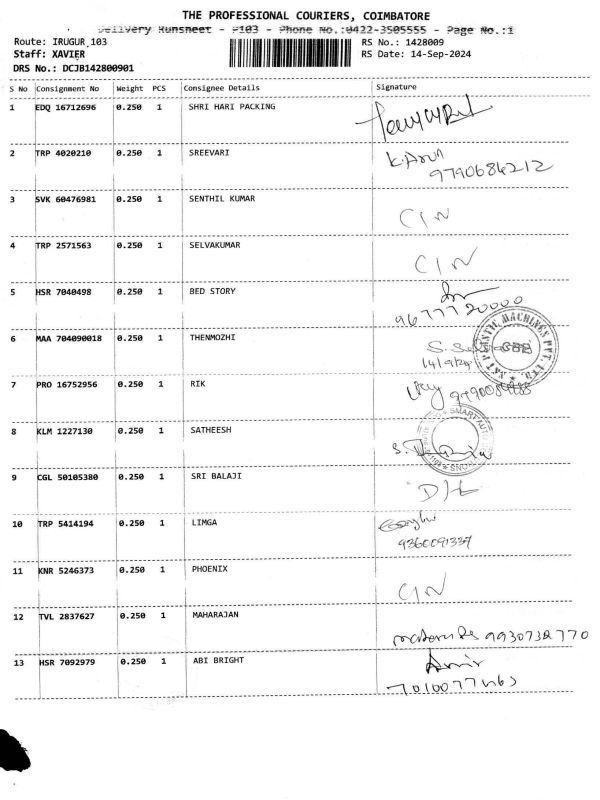 THE PROFESSIONAL COURIERS, COIMBATORE
Delivery Runsheet - P103 - Phone No.:0422-3505555 - Page No.:1
Route: IRUGUR,103
RS No.: 1428009
Staff: XAVIER
RS Date: 14-Sep-2024
DRS No.: DCJB142800901
S No Consignment No Weight PCS Consignee Details Signature
1 EDQ 16712696 0.250 1 SHRI HARI PACKING
2 TRP 4020210 0.250 1 SREEVARI K.Arun
9790684212
3 SVK 60476981 0.250 1 SENTHIL KUMAR
CIN
4 TRP 2571563 0.250 1 SELVAKUMAR
CIN
5 HSR 7040498 0.250 1 BED STORY
96777 20000
6 MAA 704090018 0.250 1 THENMOZHI
14/9/24
7 PRO 16752956 0.250 1 RIK
8 KLM 1227130 0.250 1 SATHEESH
9 CGL 50105380 0.250 1 SRI BALAJI
D/L
10 TRP 5414194 0.250 1 LIMGA
9360091337
11 KNR 5246373 0.250 1 PHOENIX
CIN
12 TVL 2837627 0.250 1 MAHARAJAN
9930732770
13 HSR 7092979 0.250 1 ABI BRIGHT